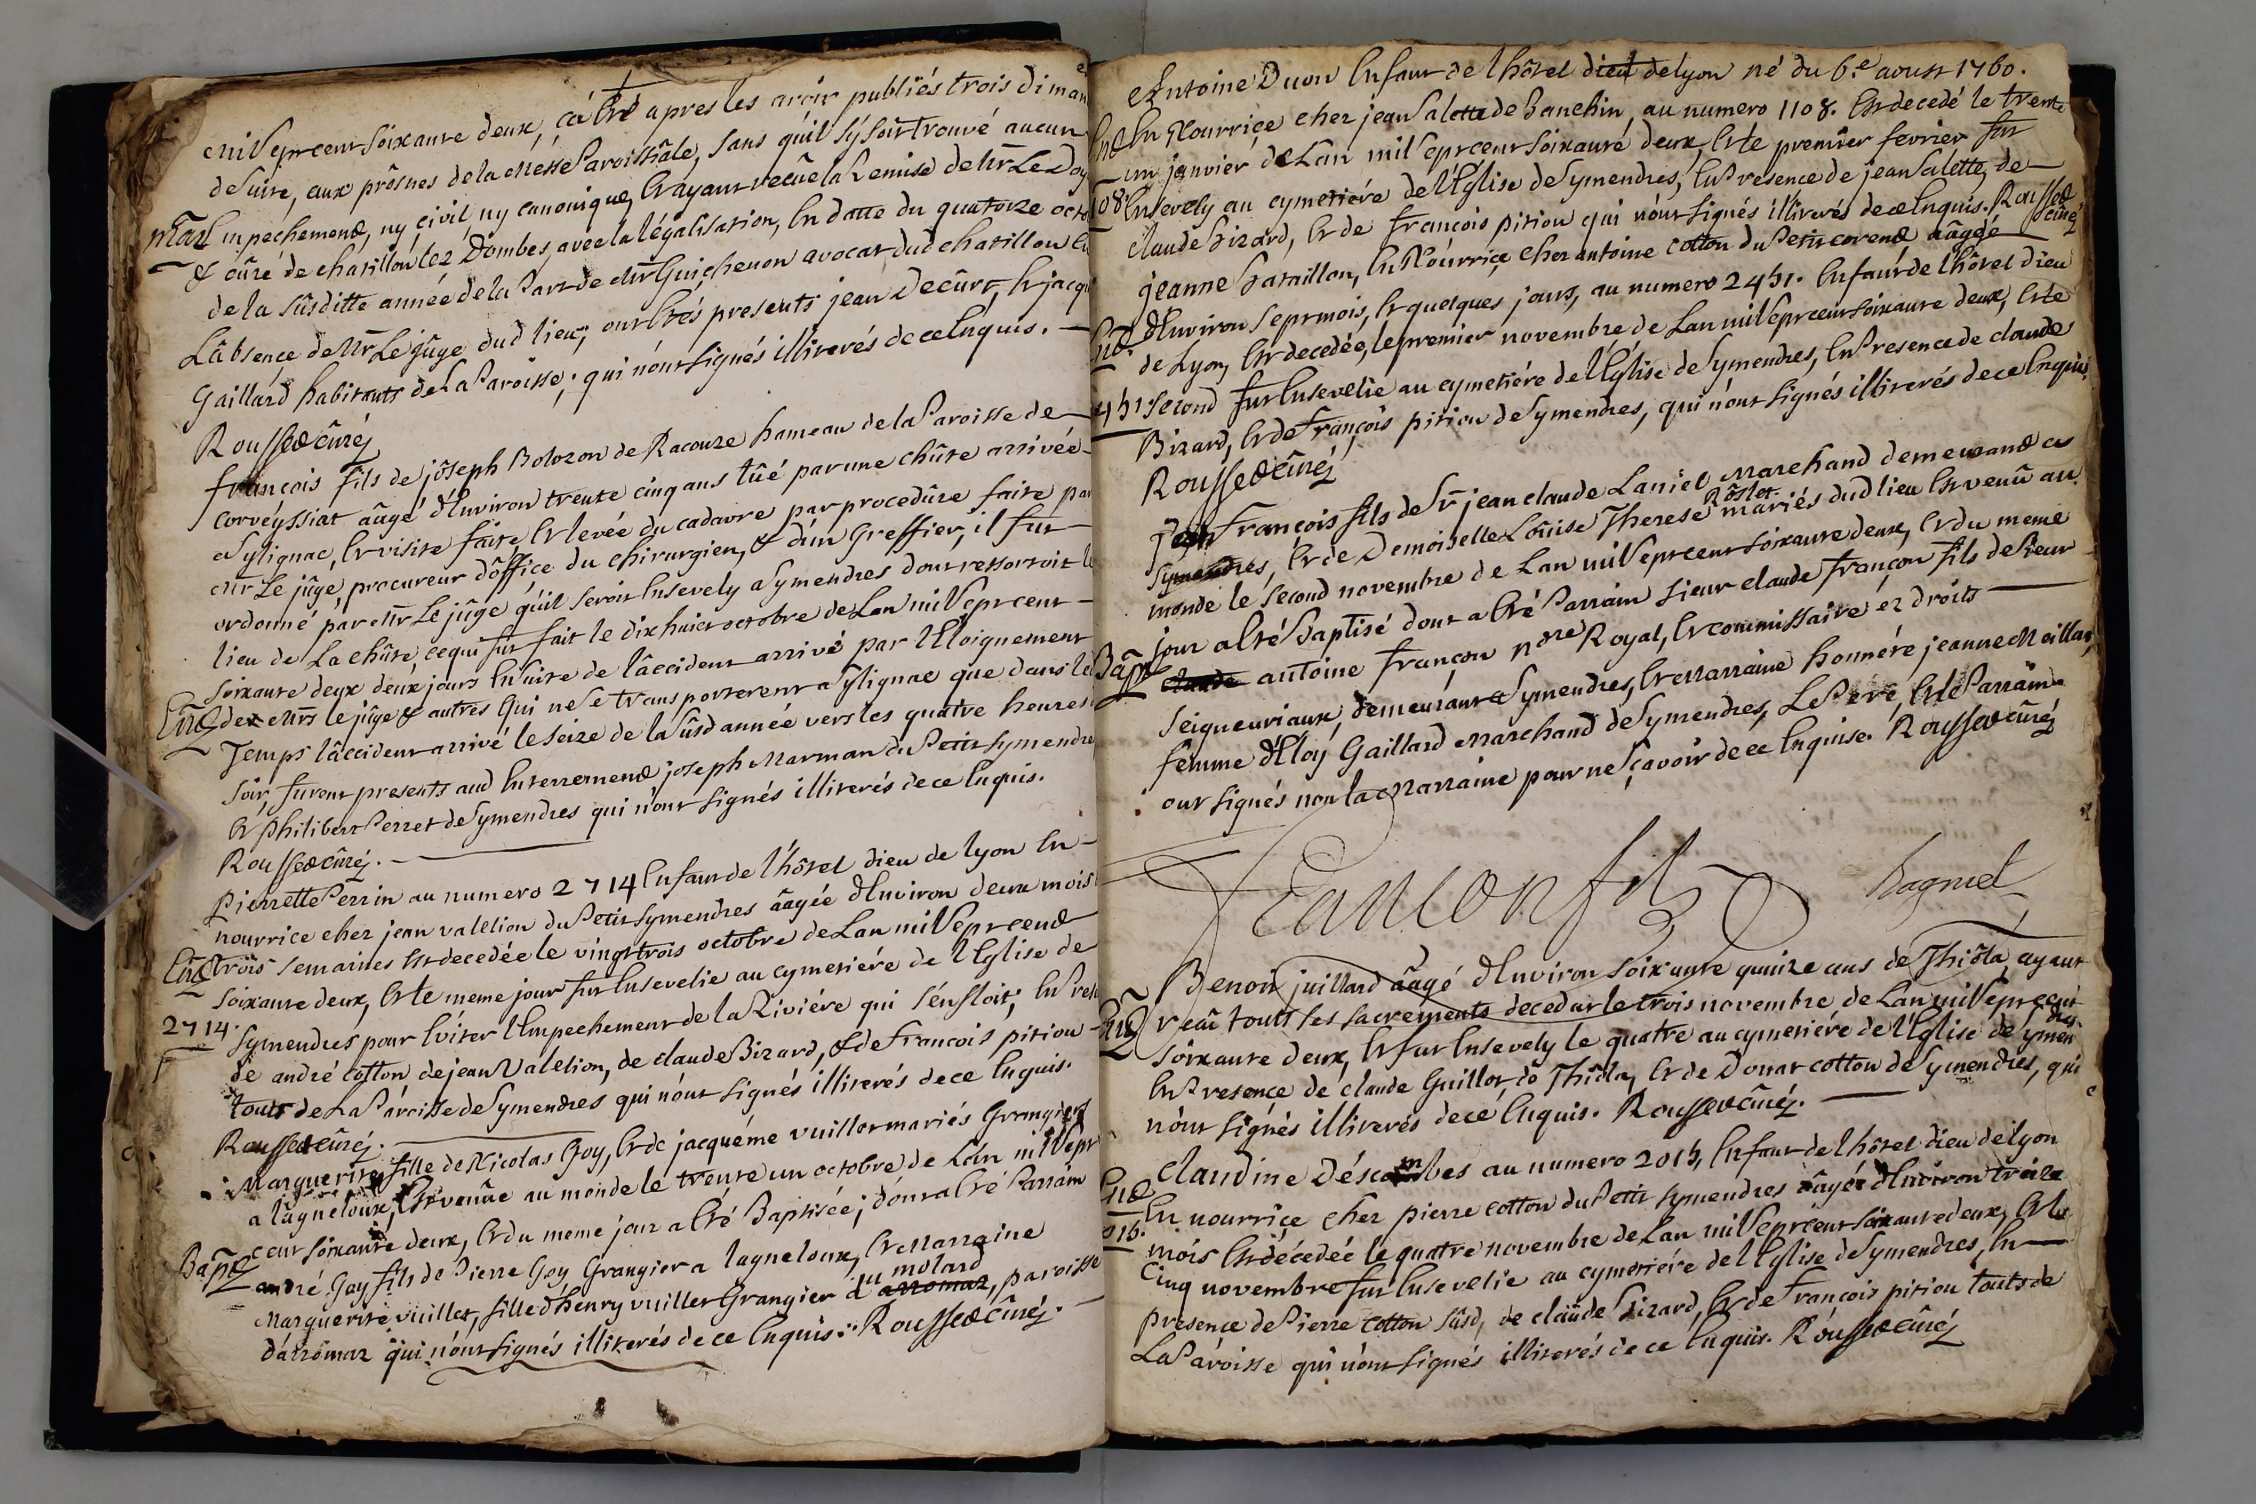 mil sept cent soixante deux, ça êtré apres les avoir publiés trois diman
de suite, aux prônes de la Messe Paroissiâle, sans qu'il s'y soit trouvé aucun
Mar empechement, ny civil, ny canonique, et ayant reçûe la remise de Mr Le Doy
& cûré de chatillon lez Dombes, avec la légalisation, en datte du quatorze octo
de la sûsditte année de la Part de Mr Guichenon avocat dud chatillon en
Lâbsence de Mr Le jûge dud lieu; ont êtés presents jean Decûrt, et jacqu
Gaillard habitants de La Paroisse; qui n'ont signés illiterés de ce Enquis.
Rousset cûré
françois fils de jôseph Bolozon de Racouze hameau de la Paroisse de
Corveyssiat âugé d'Environ trente cinq ans tûé par une chûte arrivée
a Sylignac, et visite faite et levée du cadavre par procedûre faite par
Mr Le jûge, procureur d'office du chirurgien, & d'un Greffier, il fut
ordonné par Mr Le jûge qu'il seroit Ensevely a Symendres dont ressortoit le
lieu de La chûte, ce qui fût fait le dix huict octobre de Lan mil sept cent
soixante deux deux jours ensuite de lâccident arrivé par l'Eloignement
Ent de Mrs le jûge & autres qui ne se transporterent a Sylignac que dans le
Temps lâccident arrivé le seize de la sûsd année vers les quatre heures
soir, furent presents aud Enterrement joseph Marman du Petit Symendre
et philibert Perret de Symendres qui n'ont signés illiterés de ce Enquis.
Rousset cûré.
Pierrette Perrin au numero 2714 Enfant de l'hôtel dieu de lyon En
nourrice chez jean valetion du Petit Symendres âagée d'Environ deux mois
Ent trois semaines est decedée le vingt trois octobre de Lan mil sept cent
soixante deux, et le meme jour fut Ensevelie au cymetiére de l'Eglise de
2714. Symendres pour Eviter l'Empechement de la Riviére qui s'enfloit; En Pres
de andré Cotton de jean Valetion, de claude Bizard, & de François pitiou
touts de La Paroisse de Symendres qui n'ont signés illiterés de ce Enquis.
Rousset cûré.
Marguerite fille de Nicolas Goy, et de jacquéme vuillet mariés Grangiers
a lagneloux, est venûe au monde le trente un octobre de Lân mil sept
cent soixante deux, et du meme jour a êté Baptisée; dont a êté Parrain
Bapt andré Goy fils de Pierre Goy Grangier a lagneloux, et Marraine
Marguerite vuillet, fille d'henry vuillet Grangier d'arromaz du molard, paroisse
d'arromaz qui n'ont signés illiterés de ce Enquis. Rousset cûré.
Antoine Duon Enfant de l'hôtel dieu de lyon né du 6.e aoust 1760.
Ent En Nourriçe chez jean Salette de Banchin, au numero 1108. Est decedé le trente
un janvier de Lan mil sept cent soixante deux, et le premier fevrier fut
108. Ensevely au cymetiére de l'Eglise de Symendres, En Presence de jean Salette, de
claude Bizard, et de françois pitiou qui n'ont signés illiterés de ce Enquis. Rousset cûré
Jeanne Bataillon, En Nourriçe chez antoine cotton du Petit corent âaggé
Ent d'Environ sept mois, et quelques jours, au numero 2451. Enfant de l'hôtel dieu
de Lyon, Est decedée, le premier novembre de Lan mil sept cent soixante deux, et le
451. second fut Ensevelie au cymetiére de l'Eglise de Symendres, En Presence de claude
Bizard, et de françois pitiou de Symendres, qui n'ont signés illiterés de ce Enquis
Rousset cûré
François fils de Sr jean claude Laniel Marchand demeurant a
Symendres, et de Demoiselle Loûise Therese Rôslet mariés dud lieu Est venû au
monde le second novembre de Lan mil sept cent soixante deux, et du meme
jour a êté Baptisé dont a êté Parrain sieur claude françon fils de sieur
Bapt claude antoine françon nore Royal, et commissaire ez droits
Seigneuriaux, demeurant a Symendres, et Marraine honnéte jeanne Moillar,
femme d'Eloy Gaillard Marchand de Symendres, Le Pere, et le Parrain
ont signés non la Marraine pour ne sçavoir de ce Enquise. Rousset cûré
francon fils
Benoit juillard âagé d'Environ soixante quinze ans de Thiôla, ayant
Ent reçû touts ses sacrements deced ar le trois novembre de Lan mil sept cent
soixante deux, et fut Ensevely le quatre au cymetiére de l'Eglise de Symendres
En Presence de claude Guillot dô Thiôla, et de Donat cotton de Symendres, qui
n'ont signés illiterés de ce Enquis. Rousset cûré.
Claudine Déscombes au numero 2015, Enfant de l'hôtel dieu de lyon
Ent En nourriçe chez pierre cotton du Petit symendres âagée d'Environ treize
015. mois Est décedeé le quatre novembre de Lan mil sept cent soixante deux, et le
Cinq novembre fut Ensevelie au cymetiére de l'Eglise de Symendres, En
presence de Pierre Cotton sûsd, de claûde Bizard, et de François pitiou touts de
La Paroisse qui n'ont signés illiterés de ce Enquis. Rousset cûré